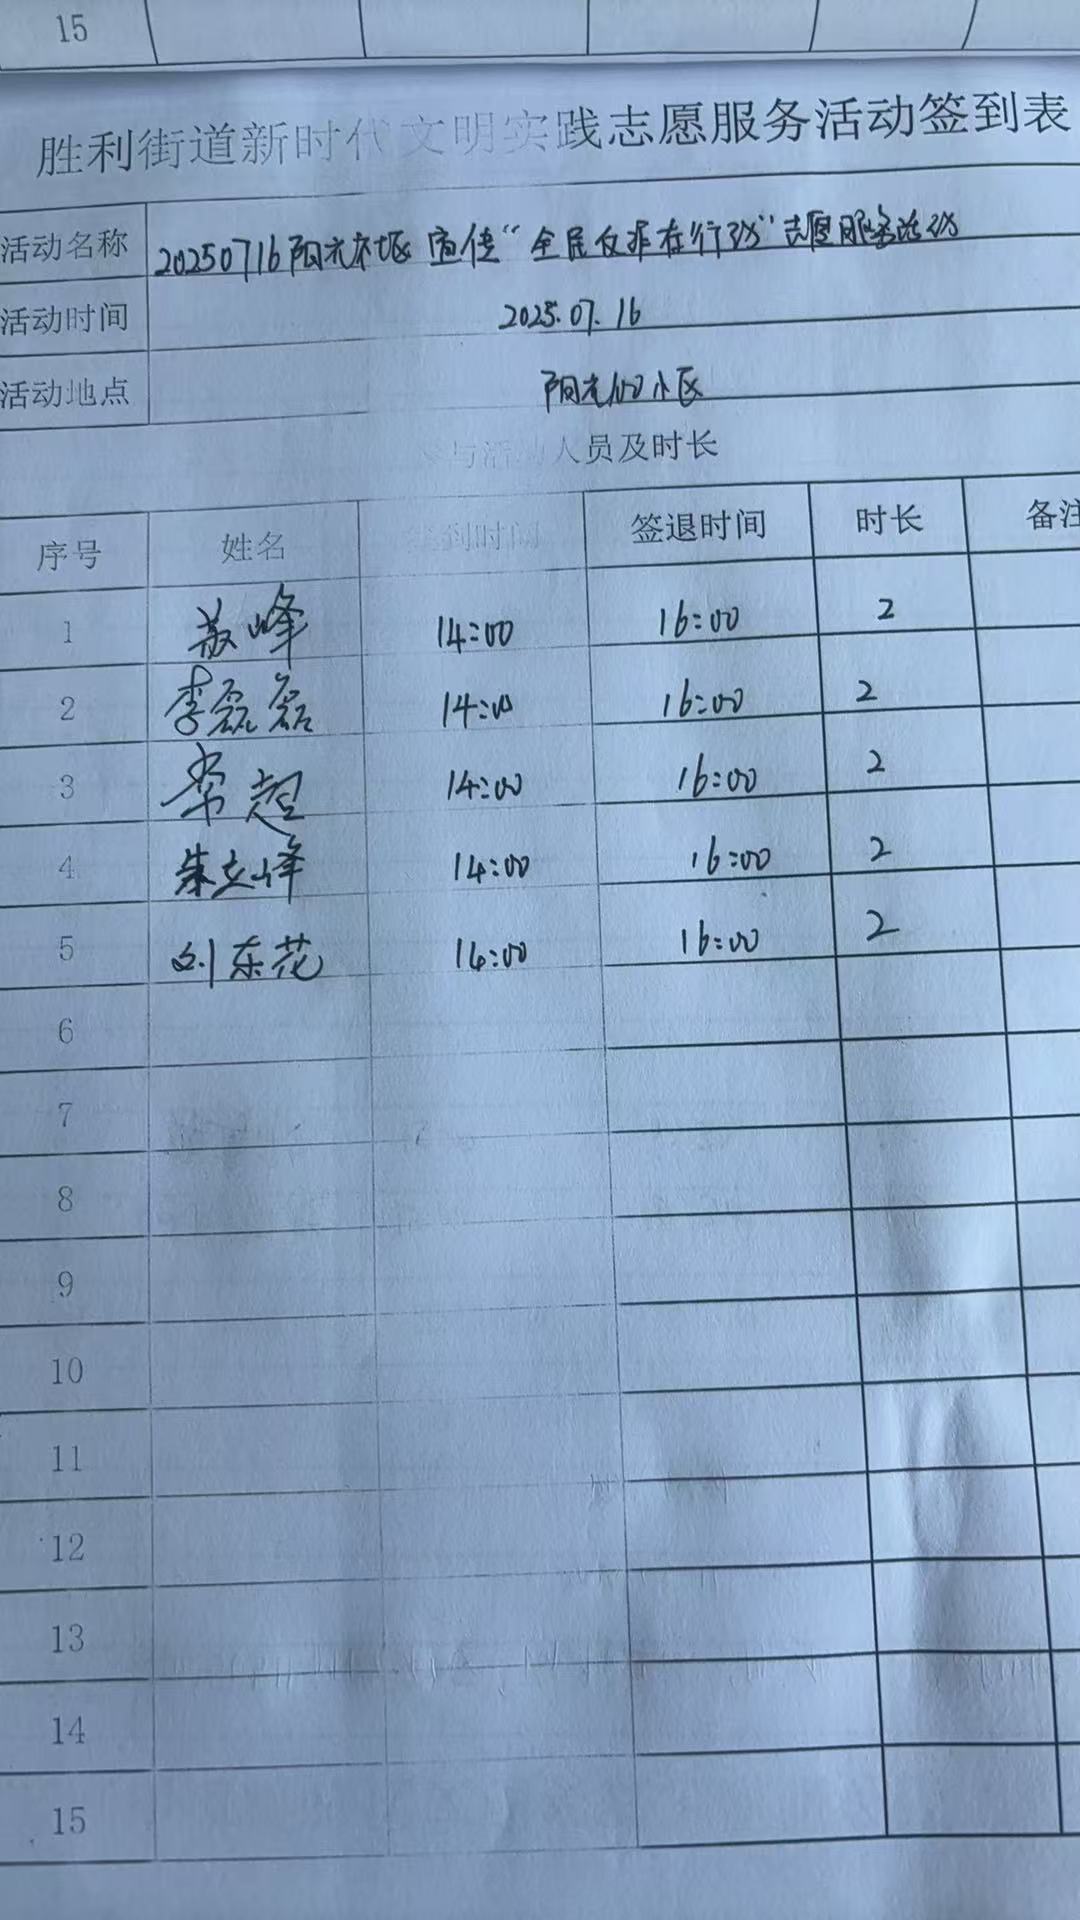 15
胜利街道新时代文明实践志愿服务活动签到表
活动名称 20250716阳光社区宣传“全民反诈在行动”志愿服务活动
活动时间 2025.07.16
活动地点 阳光100小区
参与活动人员及时长
序号 姓名 签到时间 签退时间 时长 备注
1 苏峰 14:00 16:00 2
2 李磊磊 14:00 16:00 2
3 常超 14:00 16:00 2
4 朱立峰 14:00 16:00 2
5 刘东花 14:00 16:00 2
6
7
8
9
10
11
12
13
14
15